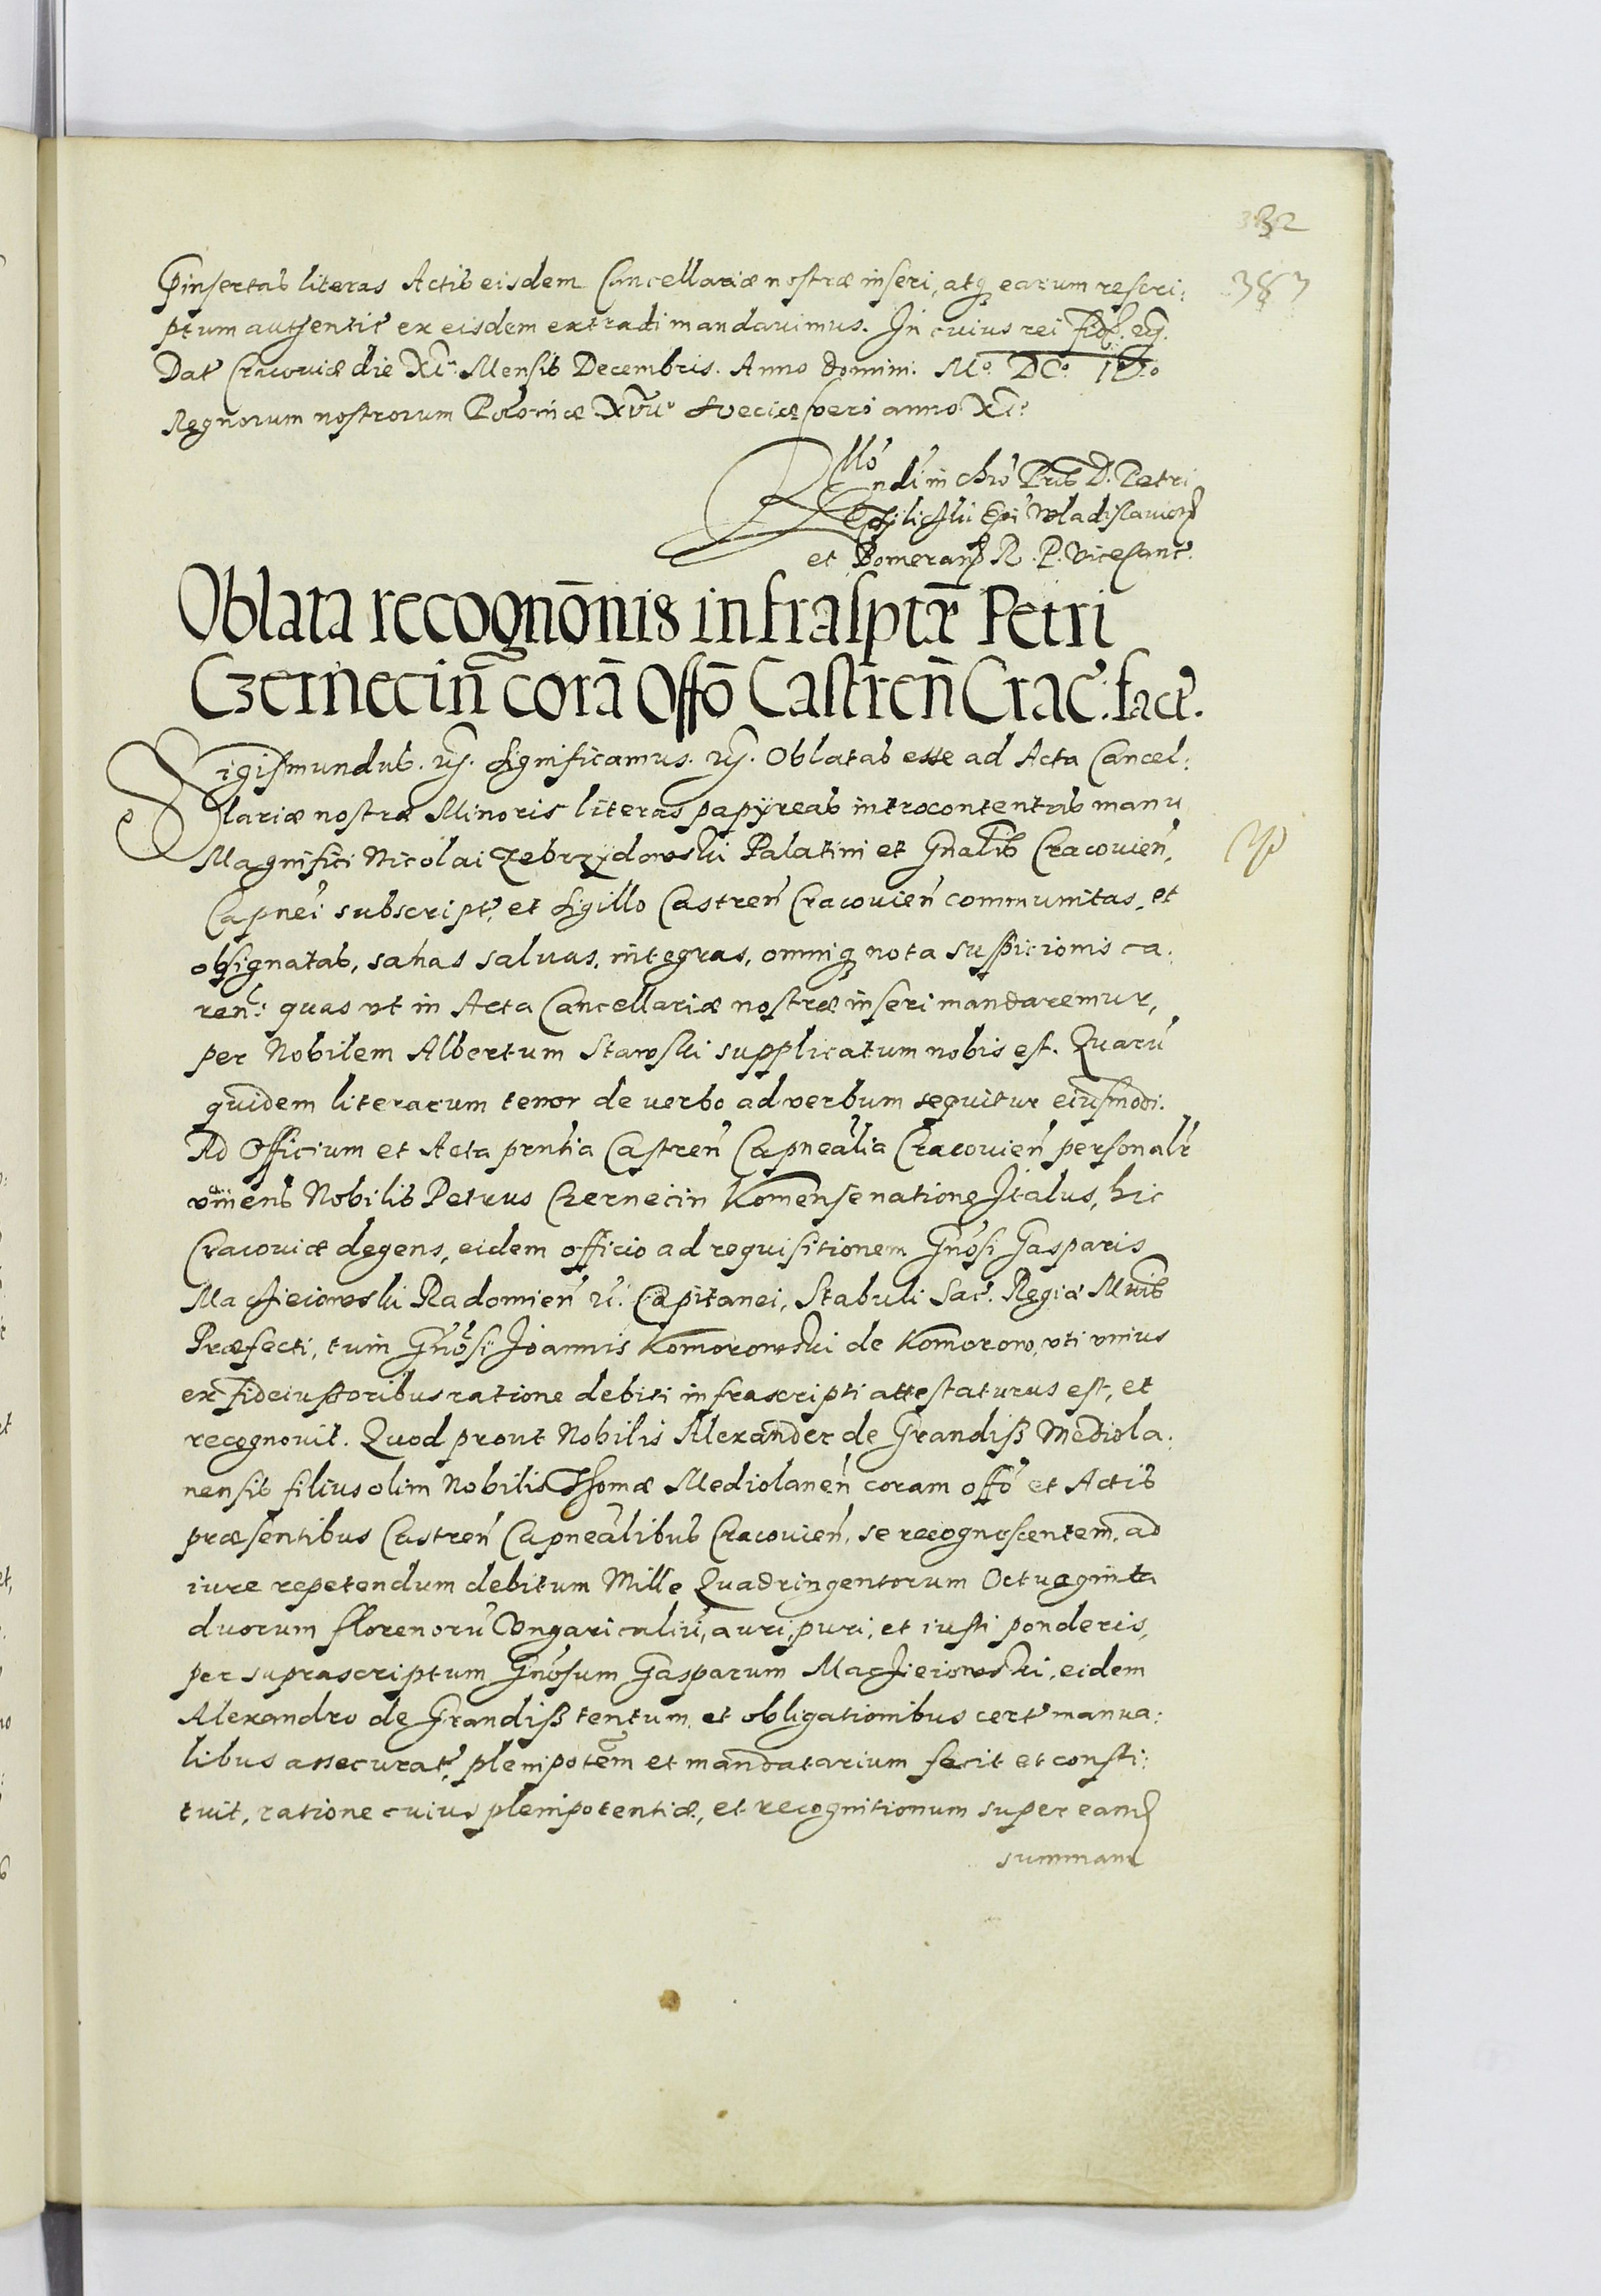 382
383
Pinsertas literas Actis eisdem Cancellariæ nostræ inseri, atq₃ earum rescri:
ptum authentic̃ ex eisdem extradi mandavimus. In cuius rei fid. etc.
Dat̃ Cracoviæ die XI. Mensis Decembris. Anno Domini. Mo. DCo. IVo
Regnorum nostrorum Poloniæ XVII. Sveciæ vero anno XI.
Rllõ
ndi in chrõ Pris D. Petri
Tÿlicki Epi Wladislavieñ
et Pomerañ R. P. Vicecanc̃.
Oblata recognōnis infrasptæ Petri
Czernecin̄ corā Offō Castren̄ Crac̃. fact̃.
Sigismundus. etc. Significamus. etc. Oblatas esse ad Acta Cancel:
lariæ nostræ Minoris literas papÿreas introcontentas manu
Magnifici Nicolai Zebrzÿdowski Palatini et Gñalis Cracovieñ,
Capnei subscript̃, et Sigillo Castreñ Cracovieñ communitas, et
obsignatas, sanas salvas, integras, omniq₃ nota suspicionis ca:
reñ: quas vt in Acta Cancellariæ nostræ inseri mandaremur,
per Nobilem Albertum Stawski supplicatum nobis est. Quarũ
quidem literarum tenor de verbo ad verbum sequitur eiusmodi.
Ad Officium et Acta prñtia Castreñ Capnealia Cracovieñ personalr̃
veniens Nobilis Petrus Czernecin Komense natione Italus, hic
Cracoviæ degens, eidem officio ad requisitionem Gñosi Gasparis
Macieiowski Radomieñ etc. Capitanei, Stabuli Sac̃. Regiæ Mtis
Præfecti, tum Gñosi Joannis Komorowski de Komorow, vti vnius
ex fideiussoribus ratione debiti infrascripti attestaturus est, et
recognovit. Quod prout Nobilis Alexander de Grandiss Mediola:
nensis filius olim Nobilis Thomæ Mediolaneñ coram offõ et Actis
præsentibus Castreñ Capnealibus Cracovieñ, se recognoscentem, ad
iure repetendum debitum Mille Quadringentorum Octuaginta
duorum florenorũ Vngaricaliũ, auri, puri, et iusti ponderis,
per suprascriptum Gñosum Gasparum Macieiowski, eidem
Alexandro de Grandiss tentum, et obligationibus cert̃ manua:
libus assecurat̃, plenipotẽm et mandatarium fecit et consti:
tuit, ratione cuius plenipotentiæ, et recognitionum super eand
summam